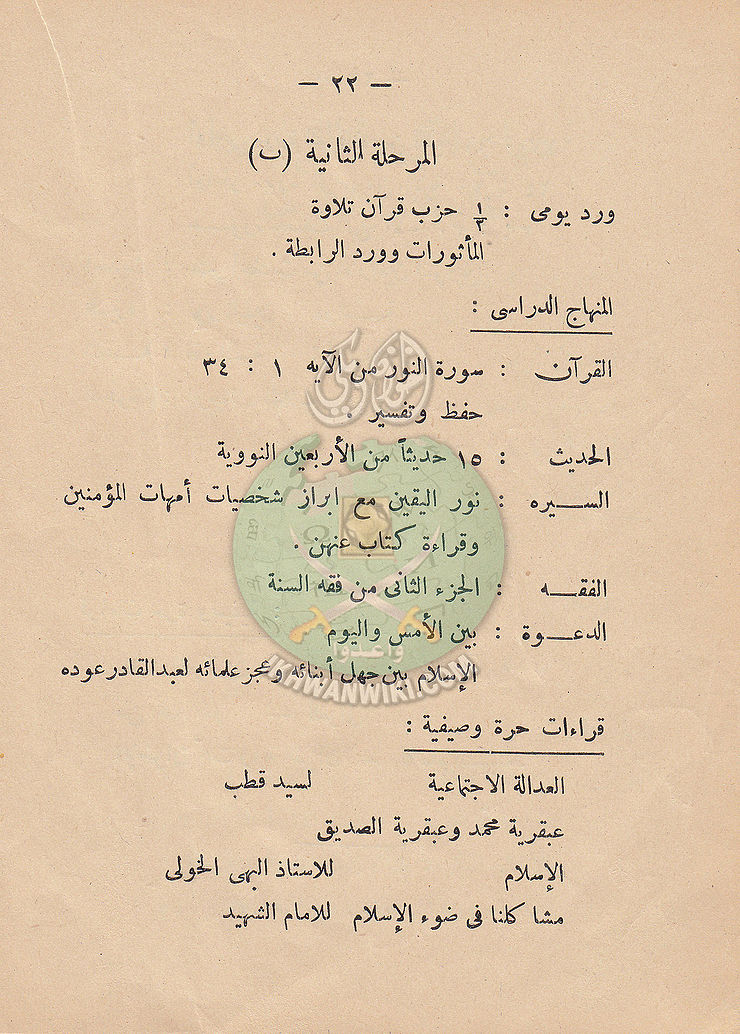 — ٢٢ —
المرحلة الثانية (ب)
ورد يومى : ١/٣ حزب قرآن تلاوة
المأثورات وورد الرابطة .
المنهاج الدراسى :
القرآن : سورة النور من الآيه ١ : ٣٤
حفظ وتفسير .
الحديث : ١٥ حديثاً من الأربعين النووية
السيره : نور اليقين مع ابراز شخصيات أمهات المؤمنين
وقراءة كتاب عنهن .
الفقه : الجزء الثانى من فقه السنة
الدعوة : بين الأمس واليوم
الإسلام بين جهل أبنائه وعجز علمائه لعبد القادر عوده
قراءات حرة وصيفية :
العدالة الاجتماعية لسيد قطب
عبقرية محمد وعبقرية الصديق
الإسلام للاستاذ البهى الخولى
مشاكلنا فى ضوء الإسلام للامام الشهيد
وأعدوا
IKHWANWIKI.COM